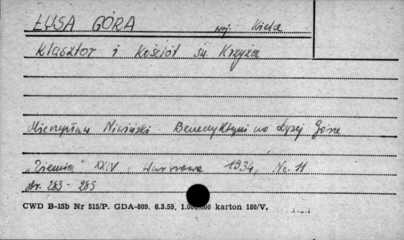 ŁYSA GÓRA woj. Kielce
Klasztor i Kościół św. Krzyża
Mieczysław Niwiński Benedyktyni na Łysej Górze
"Ziemia" XXIV, Warszawa 1934, Nr. 11
str. 283 - 285
CWD B-15b Nr 515/P. GDA-809. 6.3.59. karton 180/V.